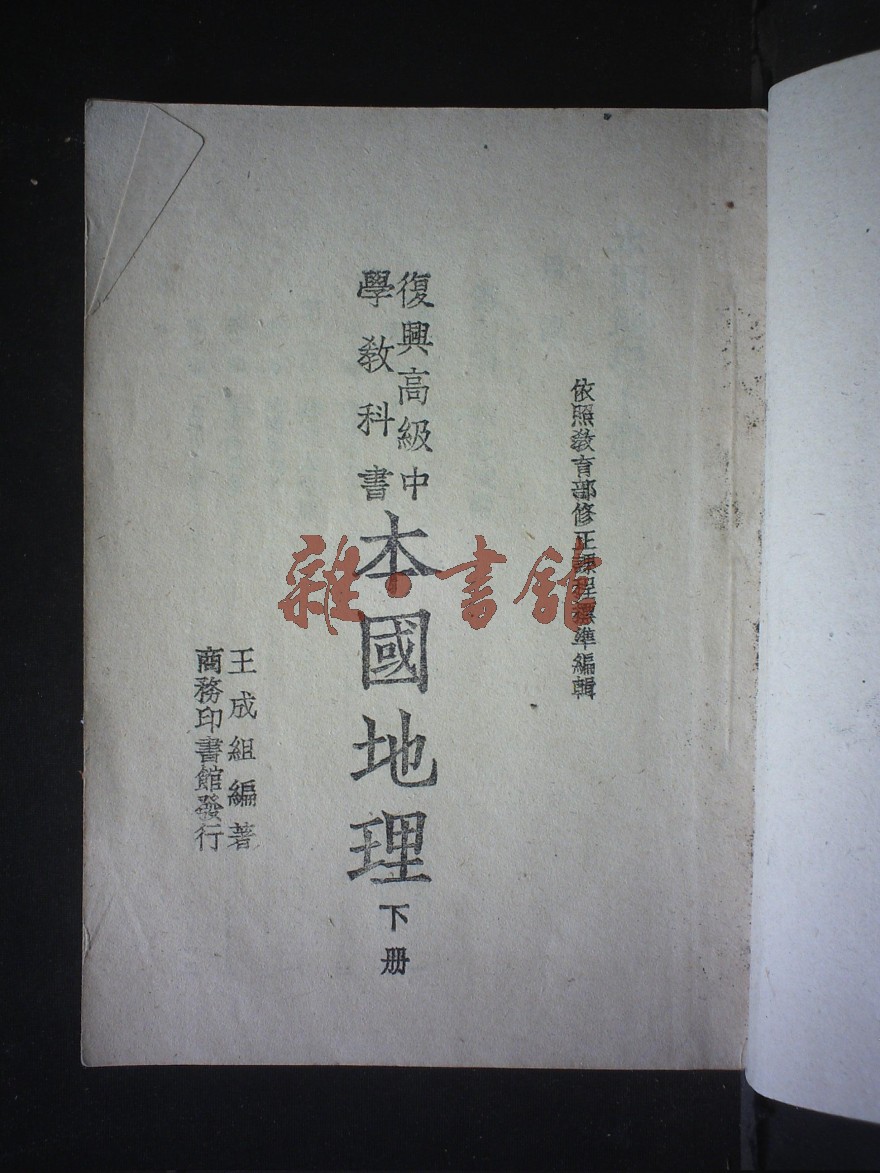 依照教育部修正課程標準編輯
復興高級中
學教科書
本國地理
下册
王成組編著
商務印書館發行
雜·書館